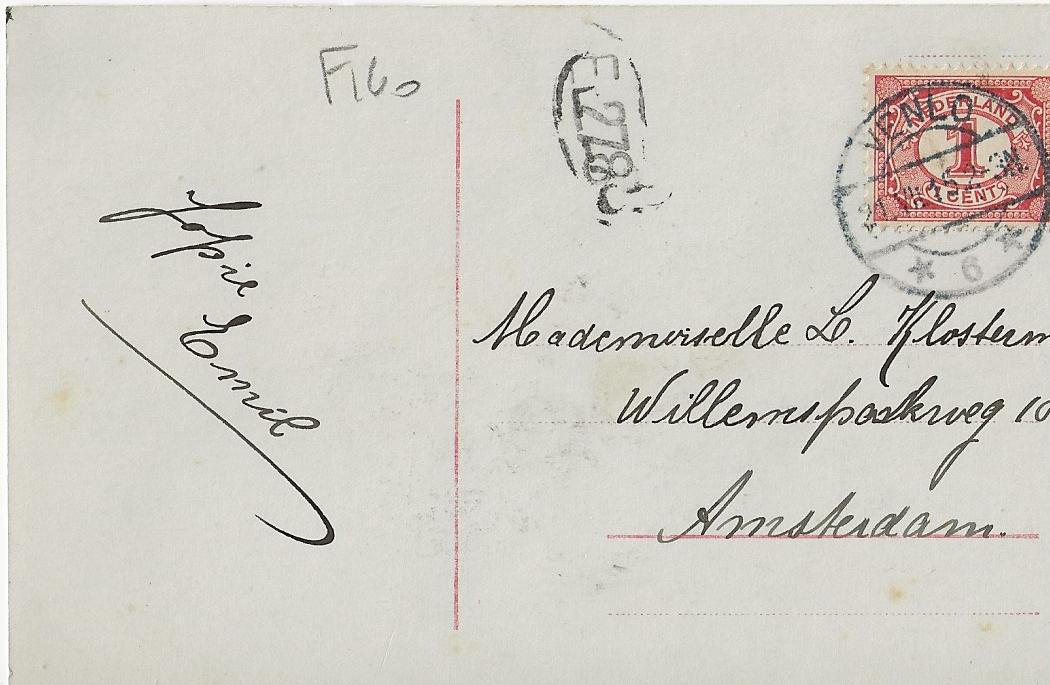 F160
E 278
NEDERLAND
1
CENT
VENLO
6
Jopie Emil
Mademoiselle L. Klosterm
Willemsparkweg 10
Amsterdam.